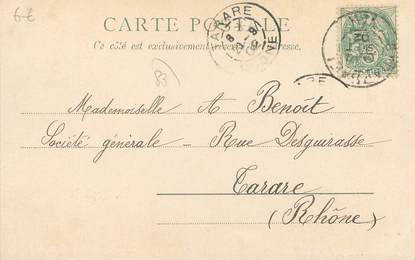 6-
CARTE POSTALE
Ce côté est exclusivement réservé à l'adresse.
TARARE
RHONE
83
Mademoiselle A Benoît
Société générale _ Rue Desguirasse
Tarare
(Rhône)